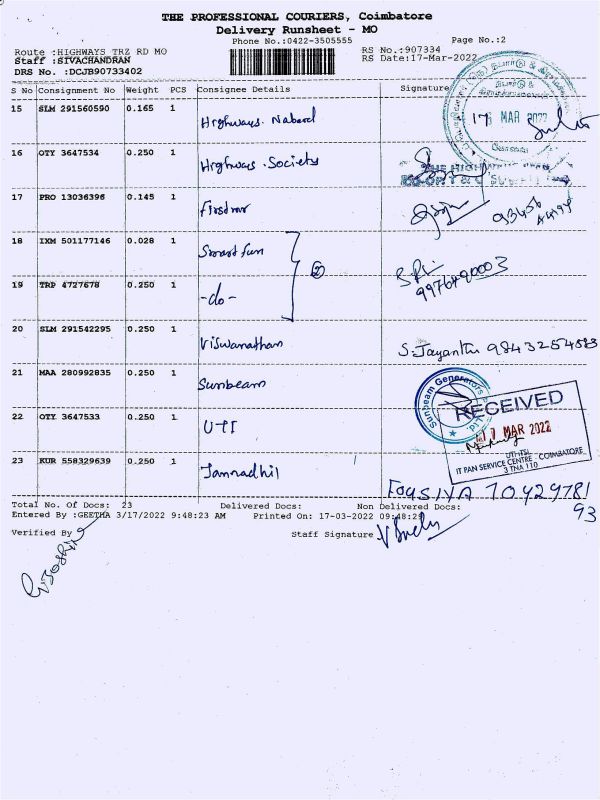 THE PROFESSIONAL COURIERS, Coimbatore
Delivery Runsheet - MO
Phone No.:0422-3505555
Page No.:2
Route :HIGHWAYS TRZ RD MO
RS No.:907334
Staff :SIVACHANDRAN
RS Date:17-Mar-2022
DRS No. :DCJB90733402
S No Consignment No Weight PCS Consignee Details Signature
15 SLM 291560590 0.165 1 Highways. Nabard
17 MAR 2022
16 OTY 3647534 0.250 1 Highways. Society
THE HIGHWAYS
17 PRO 13036396 0.145 1 Firstmr
93456
18 IXM 501177146 0.028 1 Smart fun
2
19 TRP 4727678 0.250 1 -do-
9976490003
20 SLM 291542295 0.250 1 Viswanathan
S. Jayanthi 9843254583
21 MAA 280992835 0.250 1 Sunbeam
Sunbeam Generators Ltd.
22 OTY 3647533 0.250 1 UTI
RECEIVED
17 MAR 2022
UTI-ITSL
IT PAN SERVICE CENTRE - COIMBATORE
3 TNA 110
23 KUR 558329639 0.250 1 Jannadhil
Fousiya 7042978193
Total No. Of Docs: 23 Delivered Docs: Non Delivered Docs:
Entered By :GEETHA 3/17/2022 9:48:23 AM Printed On: 17-03-2022 09:48:25
Verified By
Staff Signature